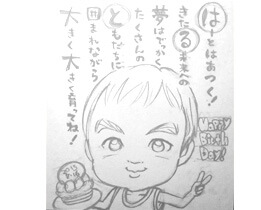 はーとはあつく!
きたる未来への
夢はでっかく
たくさんの
ともだちに
囲まれながら
大きく大きく育ってね!
HAPPY
BIRTH
DAY!